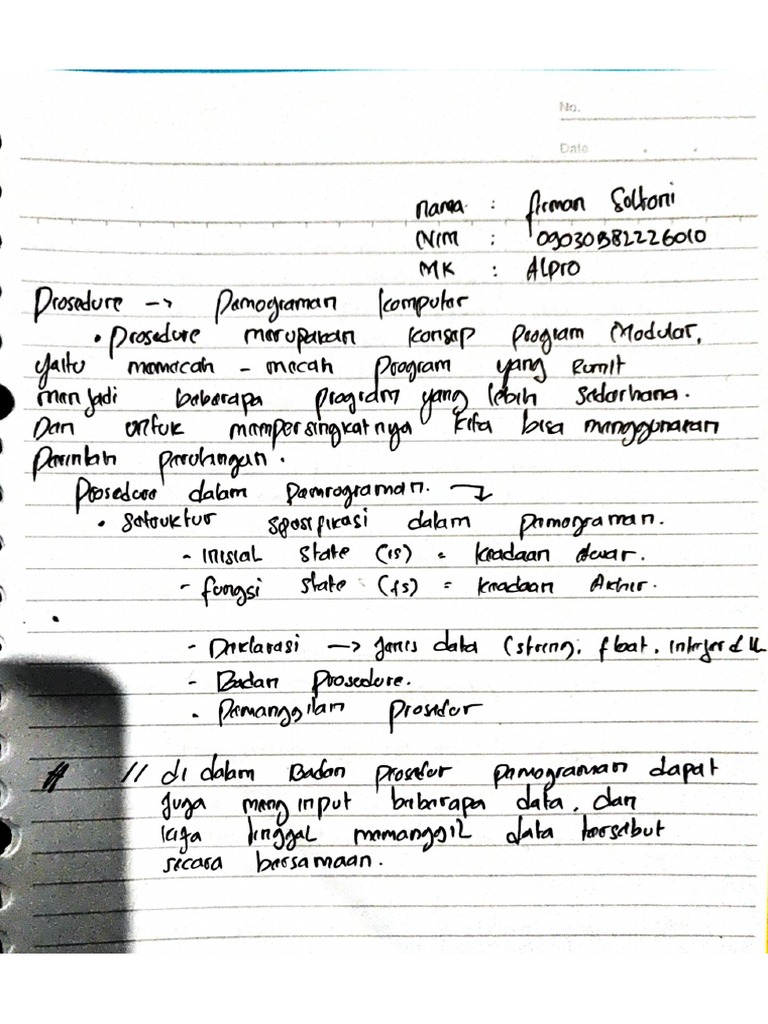 No.
Date
nama : Arman Soltoni
NIM : 09030582226010
MK : Alpro
Prosedure --> Pemograman Komputer
• Prosedure merupakan Konsep program Modular,
yaitu memecah - mecah program yang Rumit
menjadi beberapa program yang lebih sederhana.
Dan untuk mempersingkatnya kita bisa menggunakan
Perintah perulangan.
Prosedure dalam Pemrograman.
• Setruktur spesifikasi dalam pemograman.
- Inisial state (is) = keadaan awar.
- fungsi state (fs) = keadaan Akhir.
- Deklarasi --> Jenis data (string, float, interger dll
- Badan Prosedure.
- Pemanggilan Prosedur
# // di dalam Badan prosedur pemograman dapat
Juga menginput beberapa data, dan
kita tinggal memanggil data tersebut
secara bersamaan.